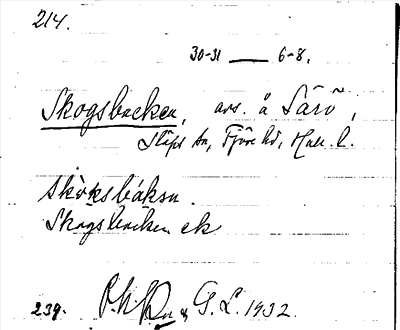 214.
30-31 — 6-8.
Skogsbacken, avs. å Särö,
Släps sn, Fjäre hd, Hall. l.
skòksbákən.
Skogsbacken ek
239. G. L. 1932.